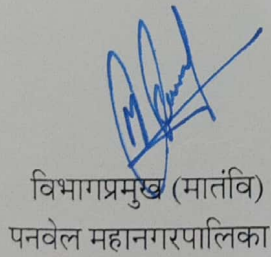 विभागप्रमुख (मातंवि)
पनवेल महानगरपालिका